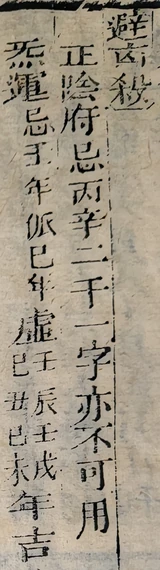 避㐫殺
正陰府忌丙辛二干一字亦不可用
炁運忌壬年派巳年虛壬辰壬戌巳丑巳未年吉